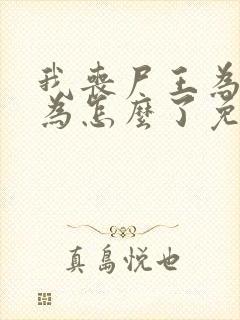 我喪尸王為
為怎麼了免
真島悅也